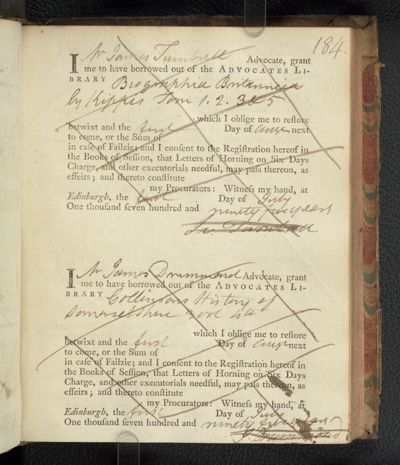 184.
I Mr James Turnbull Advocate, grant
me to have borrowed out of the ADVOCATES LI-
BRARY Biographia Britannica
by Kippis Tom 1. 2. 3 & 5
which I oblige me to reſtore
betwixt and the first Day of next
to come, or the Sum of
in caſe of Failzie; and I conſent to the Regiſtration hereof in
the Books of Seſſion, that Letters of Horning on Six Days
Charge, and other executorials needful, may paſs thereon, as
effeirs; and thereto conſtitute
my Procurators: Witneſs my hand, at
Edinburgh, the Day of July
One thouſand ſeven hundred and ninety five years
Turnbull
I Mr James Drummond Advocate, grant
me to have borrowed out of the ADVOCATES LI-
BRARY Collinsons History of
Somersetshire 3 vol 4to
which I oblige me to reſtore
betwixt and the first Day of next
to come, or the Sum of
in caſe of Failzie; and I conſent to the Regiſtration hereof in
the Books of Seſſion, that Letters of Horning on Six Days
Charge, and other executorials needful, may paſs thereon, as
effeirs; and thereto conſtitute
my Procurators: Witneſs my hand, at
Edinburgh, the first Day of July
One thouſand ſeven hundred and ninety five years
J Drummond